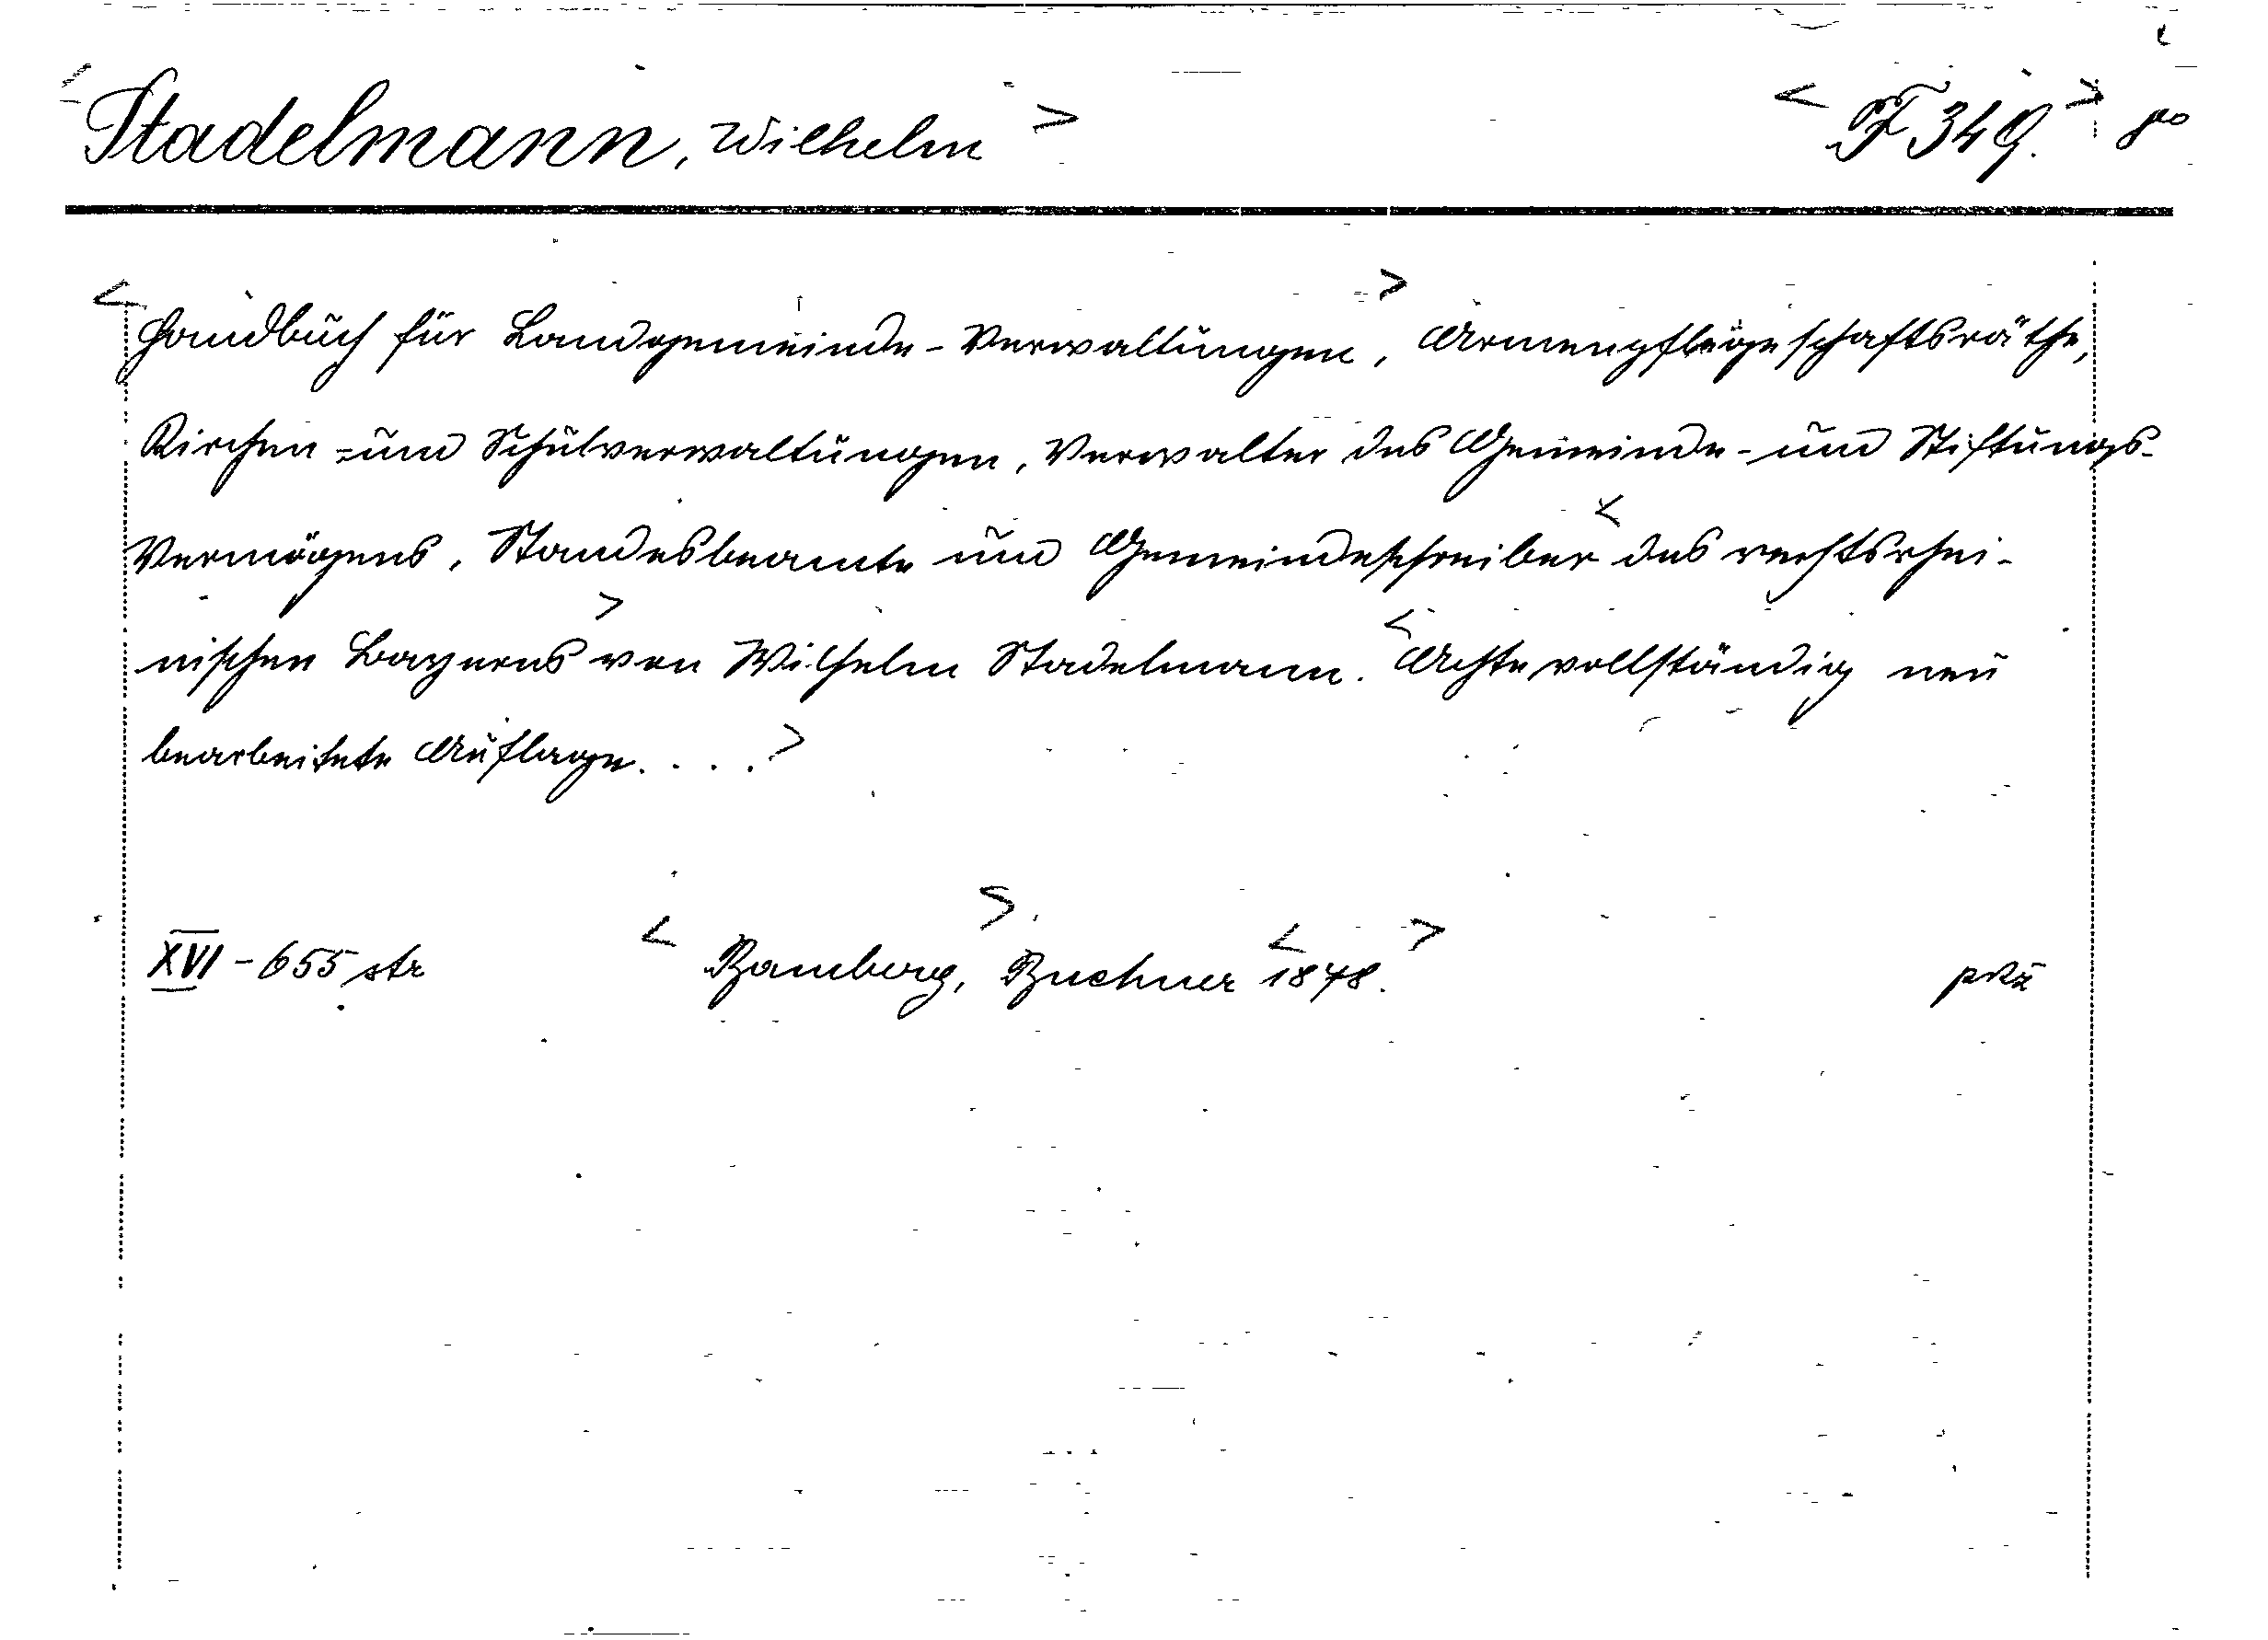 Stadelmann, Wilhelm > < F 349. >
< Handbuch für Landgemeinde-Verwaltungen, > Armenpflegschaftsräthe,
Kirchen- und Schulverwaltungen, Verwalter des Gemeinde- und Stiftungs-
Vermögens, Standesbeamte und Gemeindeschreiber < des rechtsrhei-
nischen Bayerns > von Wilhelm Stadelmann. < Achte vollständig neu
bearbeitete Auflage. . . . >
XVI - 655 str < Bamberg, > Buchner < 1878. >